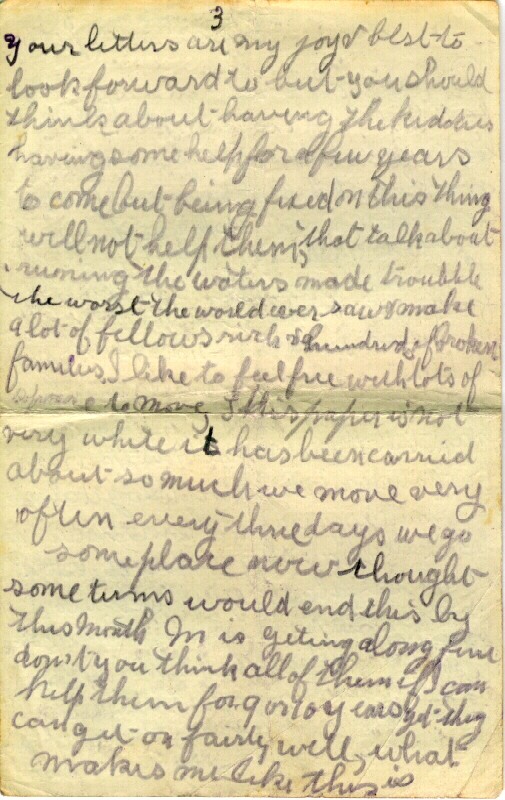 3
Your letters are my joy & best to
look forward to but you should
think about having the kiddies
having some help for a few years
to come but being fixed on this thing
will not help them, that talk about
running the waters made troubble
the worst the world ever saw & make
a lot of fellows rich & hundreds of Broken
families, I like to feel free with lots of
to move, this paper is not
very white it has been carried
about so much we move very
often every three days we go
someplace new thought
some terms would end this by
this month In is geting along fine
dont you think all of them if I can
help them for 9 or 10 years yet they
can get on fairly well, what
makes me like this is